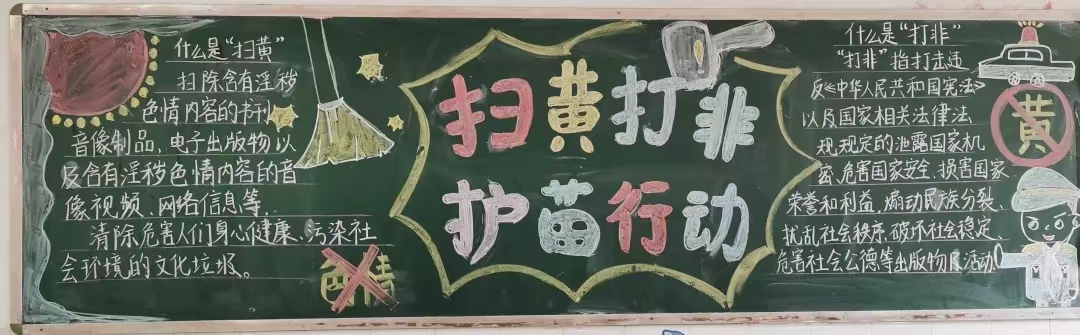 什么是“扫黄”
扫除含有淫秽
色情内容的书刊
音像制品、电子出版物以
及含有淫秽色情内容的音
像视频、网络信息等.
清除危害人们身心健康、污染社
会环境的文化垃圾。
色情
扫黄打非
护苗行动
什么是“打非”
“打非”指打击违
反《中华人民共和国宪法》
以及国家相关法律法
规规定的泄露国家机
密、危害国家安全、损害国家
荣誉和利益、煽动民族分裂、
扰乱社会秩序、破坏社会稳定、
危害社会公德等出版物及活动。
黄